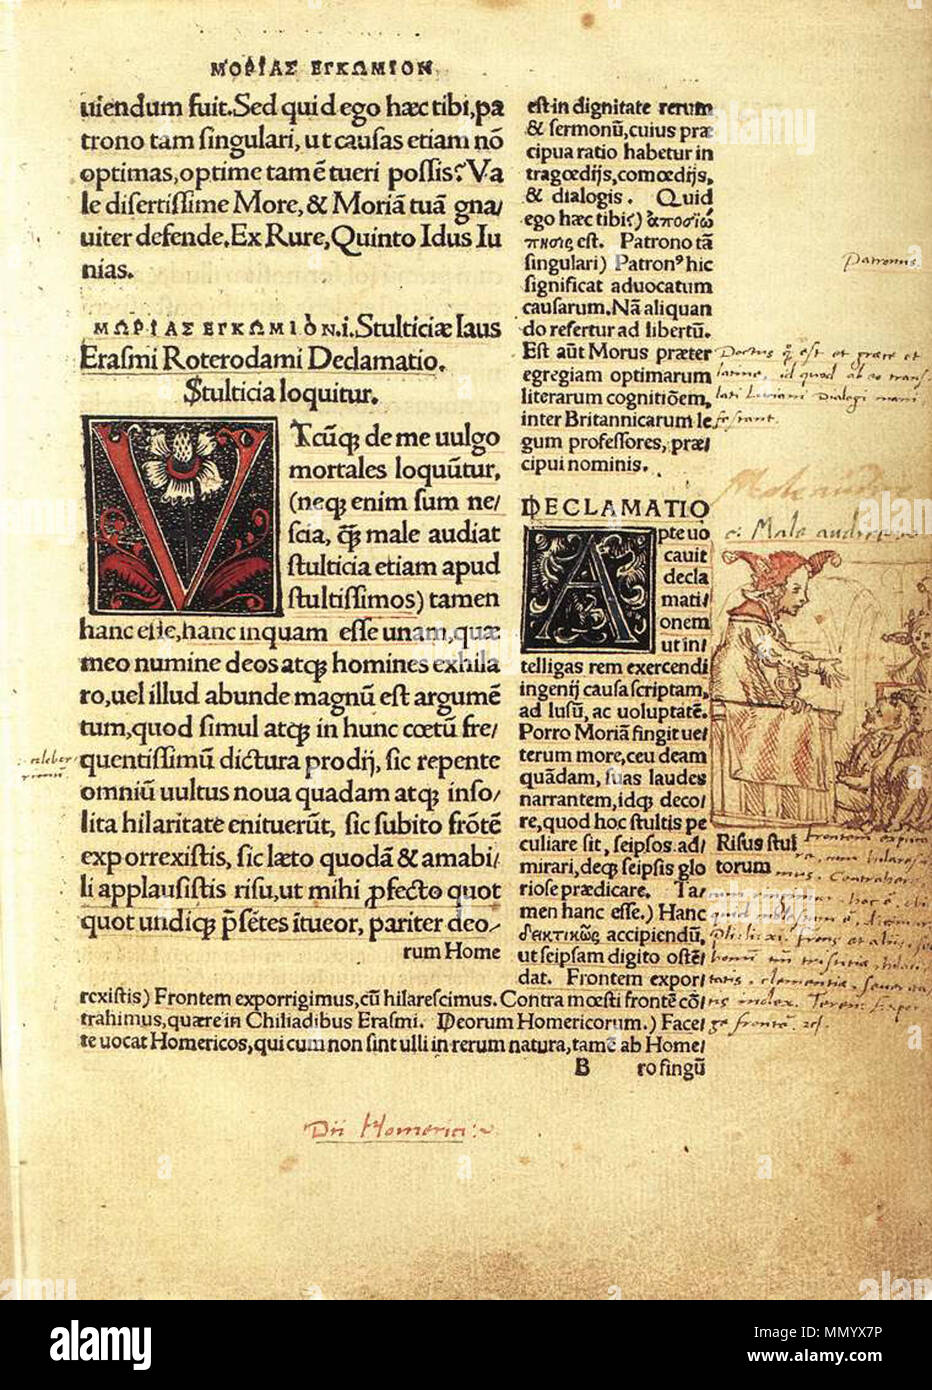 ΜΟΡΙΑΣ ΕΓΚΩΜΙΟΝ
uiendum fuit. Sed quid ego hæc tibi, pa
trono tam singulari, ut causas etiam nō
optimas, optime tamē tueri possis? Va
le disertissime More, & Moriā tuā gna/
uiter defende. Ex Rure, Quinto Idus Iu
nias.
ΜΩΡΙΑΣ ΕΓΚΩΜΙΟΝ.i. Stulticiæ laus
Erasmi Roterodami Declamatio.
Stulticia loquitur.
VTcūq; de me uulgo
mortales loquūtur,
(neq; enim sum ne/
scia, q̄ male audiat
stulticia etiam apud
stultissimos) tamen
hanc esse, hanc inquam esse unam, quæ
meo numine deos atq; homines exhila
ro, uel illud abunde magnū est argumē
tum, quod simul atq; in hunc cœtū fre/
quentissimū dictura prodij, sic repente
omniū uultus noua quadam atq; inso/
lita hilaritate enituerūt, sic subito frōtē
exporrexistis, sic læto quodā & amabi/
li applausistis risu, ut mihi ꝓfecto quot
quot undiq; p̄sētes ītueor, pariter deo/
rum Home
est in dignitate rerum
& sermonū, cuius præ
cipua ratio habetur in
tragœdijs, comœdijs,
& dialogis. Quid
ego hæc tibi?) ἀποσιώ
πησις est. Patrono tā
singulari) Patronꝰ hic
significat aduocatum
causarum. Nā aliquan
do refertur ad libertū.
Est aūt Morus præter
egregiam optimarum
literarum cognitiōem,
inter Britannicarum le
gum professores, præ/
cipui nominis.
DECLAMATIO
Apte uo
cauit
decla
mati/
onem
ut in/
telligas rem exercendi
ingenij causa scriptam,
ad lusū, ac uoluptatē.
Porro Moriā fingit ue/
terum more, ceu deam
quādam, suas laudes
narrantem, idq; deco/
re, quod hoc stultis pe
culiare sit, seipsos ad/
mirari, deq; seipsis glo
riose prædicare. Ta/
men hanc esse.) Hanc
δεικτικῶς accipiendū,
ut seipsam digito ostē/
dat. Frontem expor/
rexistis) Frontem exporrigimus, cū hilarescimus. Contra mœsti frontē cō/
trahimus, quære in Chiliadibus Erasmi. Deorum Homericorum.) Face/
te uocat Homericos, qui cum non sint ulli in rerum natura, tamē ab Home/
B ro fingū
Patronus.
Doctus q̄ est et græce et
latine, id quod ab eo trans/
lati Luciani Dialogi mani/
festant.
Male audire
Risus stul
torum
Dii Homerici:~
alamy
MMYX7P